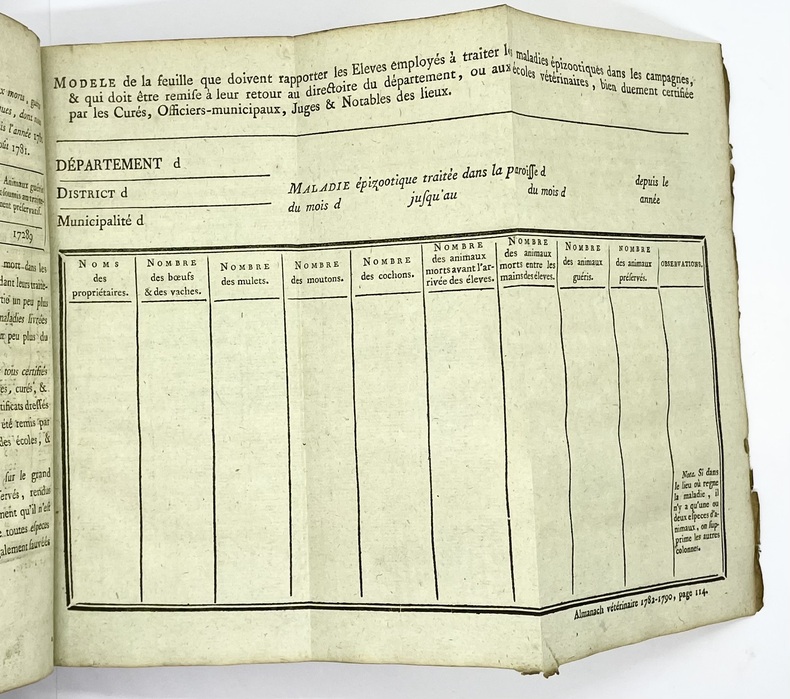 MODELE de la feuille que doivent rapporter les Eleves employés à traiter les maladies épizootiques dans les campagnes,
& qui doit être remise à leur retour au directoire du département, ou aux écoles vétérinaires, bien duement certifiée
par les Curés, Officiers-municipaux, Juges & Notables des lieux.
DÉPARTEMENT d
DISTRICT d
Municipalité d
MALADIE épizootique traitée dans la paroisse d depuis le
du mois d jusqu'au du mois d année
NOMS
des
propriétaires.
NOMBRE
des bœufs
& des vaches.
NOMBRE
des mulets.
NOMBRE
des moutons.
NOMBRE
des cochons.
NOMBRE
des animaux
morts avant l'ar-
rivée des éleves.
NOMBRE
des animaux
morts entre les
mains des éleves.
NOMBRE
des animaux
guéris.
NOMBRE
des animaux
préservés.
OBSERVATIONS.
Nota. Si dans
le lieu où regne
la maladie, il
n'y a qu'une ou
deux especes d'a-
nimaux, on sup-
prime les autres
colonnes.
Almanach vétérinaire 1782-1790, page 114.
1781.
17289
mort dans les
un peu plus
maladies livrées
peu plus du
tous certifiés
curés, &
tificats dressés
été remis par
des écoles, &
sur le grand
ervés, rendus
ment qu'il n'est
toutes especes
alement sauvées